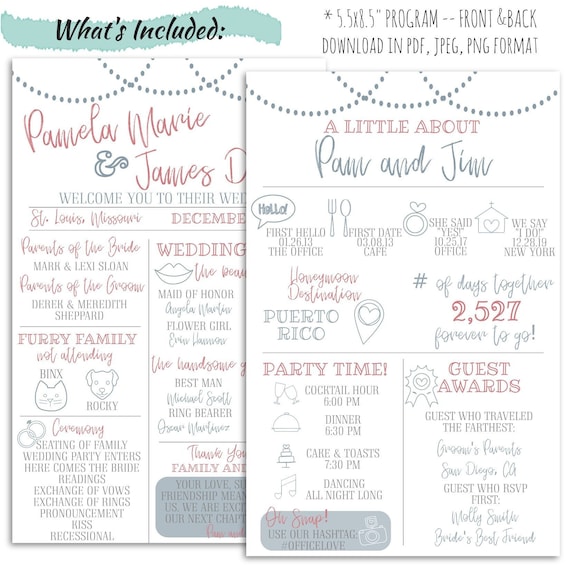 What's Included:
* 5.5x8.5" PROGRAM -- FRONT &BACK
DOWNLOAD IN PDF, JPEG, PNG FORMAT
Pamela Marie
&
James D
WELCOME YOU TO THEIR WED
St. Louis, Missouri
DECEMBER
Parents of the Bride
MARK & LEXI SLOAN
Parents of the Groom
DEREK & MEREDITH
SHEPPARD
FURRY FAMILY
not attending
BINX
ROCKY
Ceremony
SEATING OF FAMILY
WEDDING PARTY ENTERS
HERE COMES THE BRIDE
READINGS
EXCHANGE OF VOWS
EXCHANGE OF RINGS
PRONOUNCEMENT
KISS
RECESSIONAL
WEDDING
the beau
MAID OF HONOR
Angela Martin
FLOWER GIRL
Erin Hannon
the handsome g
BEST MAN
Michael Scott
RING BEARER
Oscar Martinez
Thank You
FAMILY AND
YOUR LOVE, S
FRIENDSHIP MEAN
US. WE ARE EXCI
OUR NEXT CHAPT
Pam and
A LITTLE ABOUT
Pam and Jim
Hello!
FIRST HELLO
01.26.13
THE OFFICE
FIRST DATE
03.08.13
CAFE
SHE SAID
"YES!"
10.25.17
OFFICE
WE SAY
"I DO!"
12.28.19
NEW YORK
Honeymoon
Destination
PUERTO
RICO
# of days together
2,527
forever to go!
PARTY TIME!
COCKTAIL HOUR
6:00 PM
DINNER
6:30 PM
CAKE & TOASTS
7:30 PM
DANCING
ALL NIGHT LONG
Oh Snap!
USE OUR HASHTAG:
#OFFICELOVE
GUEST
AWARDS
GUEST WHO TRAVELED
THE FARTHEST:
Groom's Parents
San Diego, CA
GUEST WHO RSVP
FIRST:
Molly Smith
Bride's Best Friend